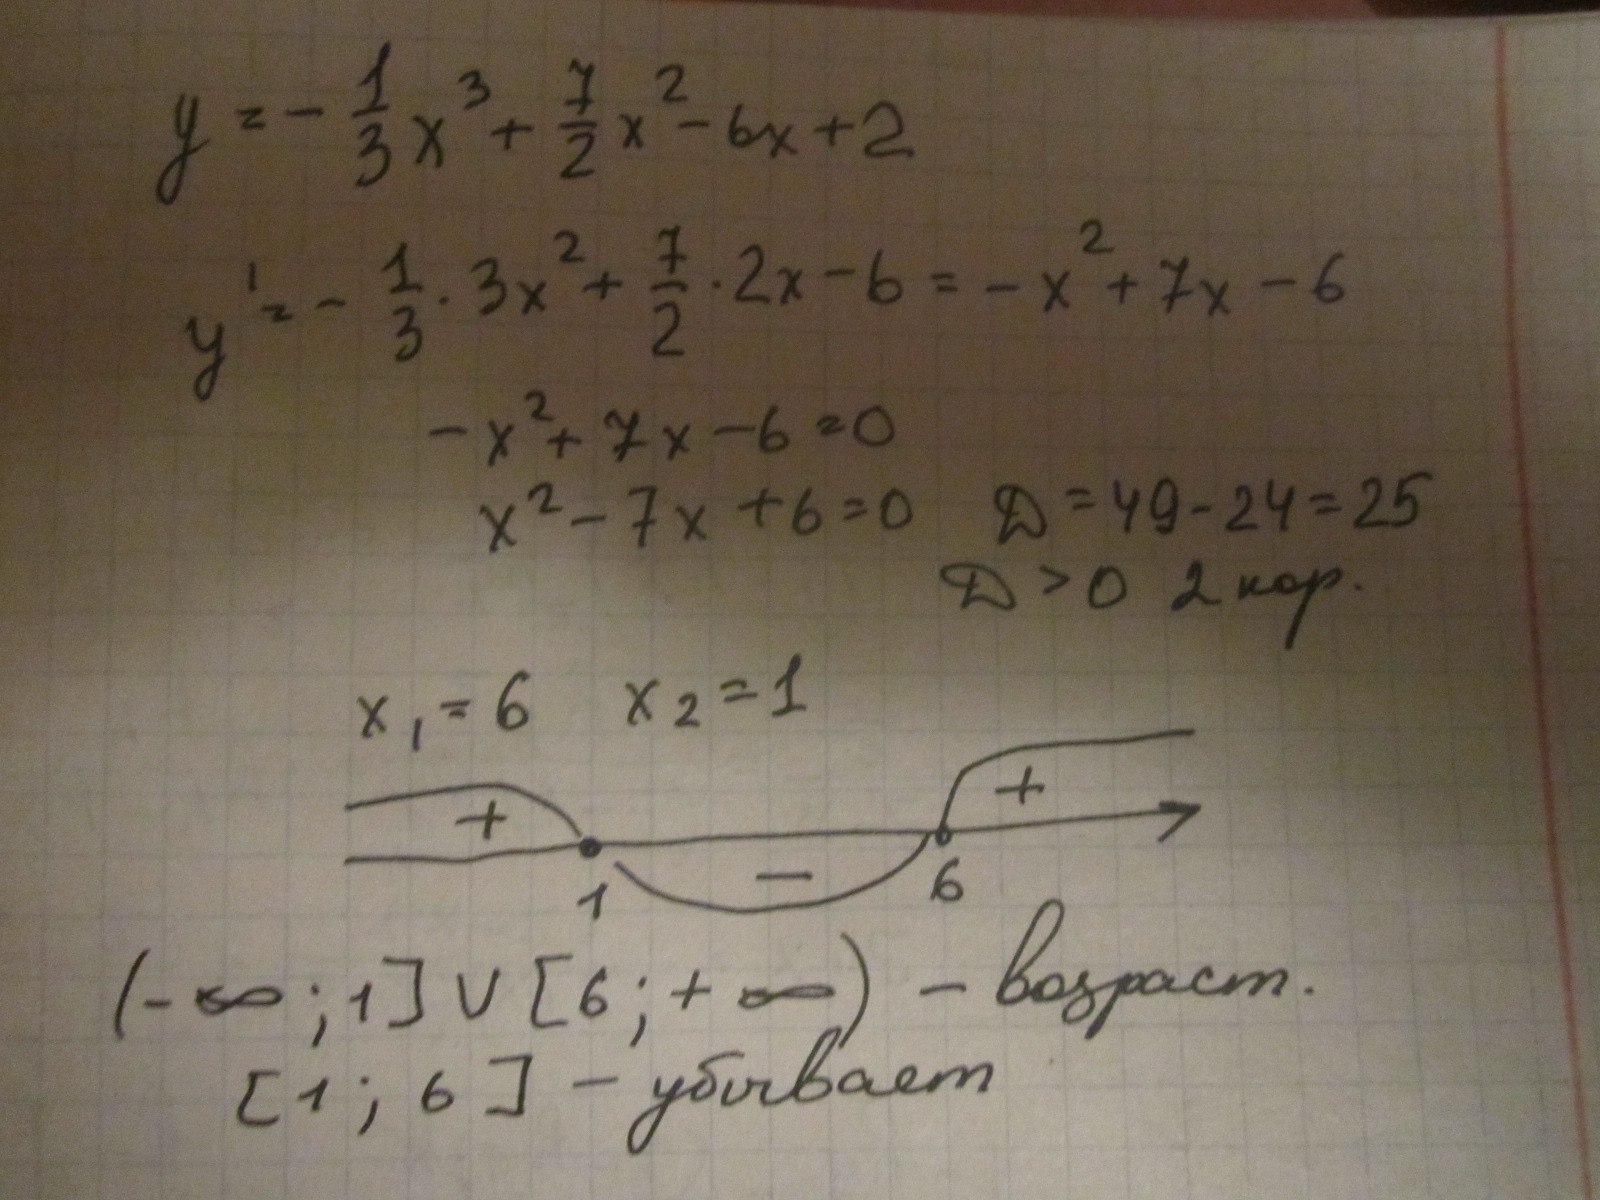 y = - 1/3 x³ + 7/2 x² - 6x + 2
y' = - 1/3 · 3x² + 7/2 · 2x - 6 = - x² + 7x - 6
- x² + 7x - 6 = 0
x² - 7x + 6 = 0 D = 49 - 24 = 25
D > 0 2 кор.
x₁ = 6 x₂ = 1
+ - +
1 6
(-∞; 1] ∪ [6; +∞) - возраст.
[1; 6] - убывает